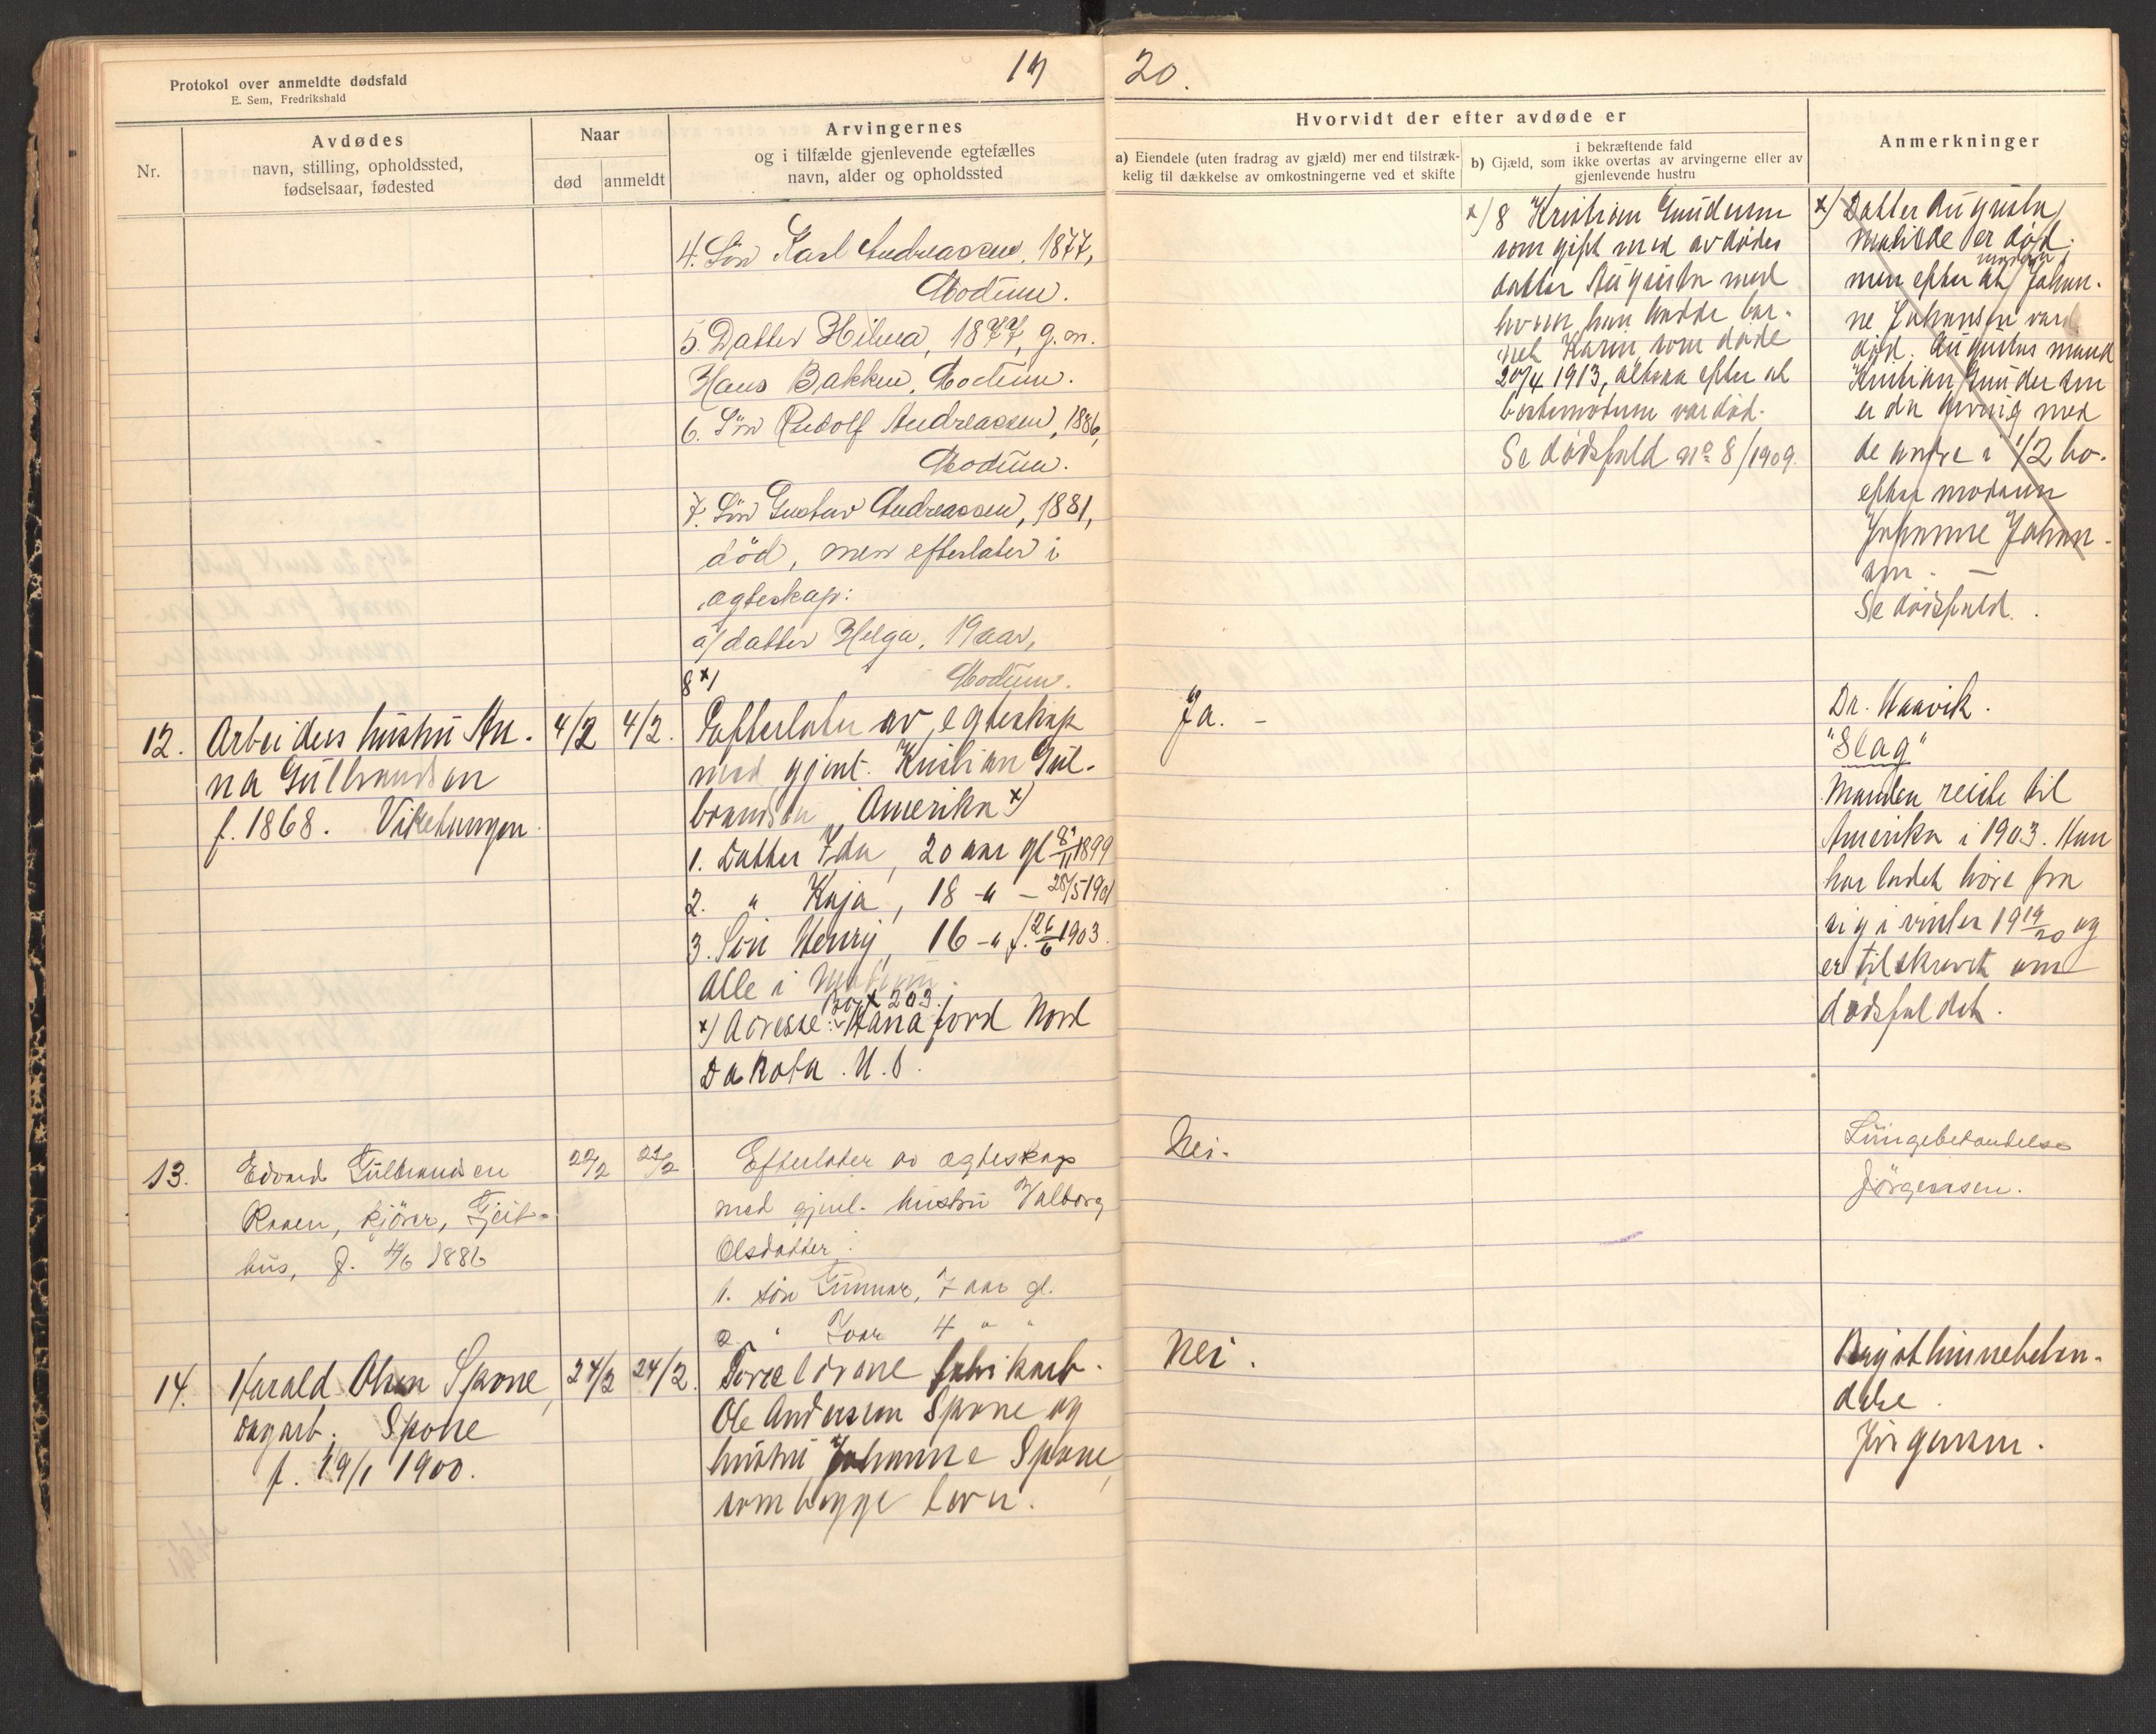 Protokol over anmeldte dødsfald
E. Sem, Fredrikshald
19
Nr.
Avdødes
navn, stilling, opholdssted,
fødselsaar, fødested
Naar
død
anmeldt
Arvingernes
og i tilfælde gjenlevende egtefælles
navn, alder og opholdssted
4. Søn Karl Andreassen, 1877,
Modum.
5. Datter Hilma, 1877, g. m.
Hans Bakken, Modum.
6. Søn Rudolf Andreassen, 1886,
Modum.
7. Søn Gustav Andreassen, 1881,
død, men efterlater i
egteskap:
a/ datter Helga, 19 aar,
Modum.
8 x/
12.
Arbeiders hustru An-
na Gulbrandsen
f. 1868. Vikesungen
4/2
4/2.
Efterlater av egteskap
med gjenl. Kristian Gul-
brandsen, Amerika x)
1. Datter Ida, 20 aar gl 8/11 1899
2. " Kaja, 18 -"- 28/5 1901
3. Søn Henry, 16 -" f. 26/6 1903.
Alle i Modum.
Box 203.
x) Adresse: Hannaford Nord
Dakota. U.S.
13.
Edvard Gulbrandsen
Raaen, kjører, Gjeit-
hus, f. 4/6 1886
22/2
22/2
Efterlater av egteskap
med gjenl. hustru Valborg
Olsdatter:
1. søn Gunnar, 7 aar gl.
2. " Ivar 4 " "
14.
Harald Olsen Spone,
Dagarb. Spone
f. 19/1 1900.
24/2
24/2.
Forældrene fabrikarb.
Ole Andersen Spone og
hustru Johanne Spone,
som begge lever.
20.
Hvorvidt der efter avdøde er
a) Eiendele (uten fradrag av gjæld) mer end tilstræk-
kelig til dækkelse av omkostningerne ved et skifte
i bekræftende fald
b) Gjæld, som ikke overtas av arvingerne eller av
gjenlevende hustru
Anmerkninger
x) 8 Kristian Gundersen
som gift med avdødes
datter Augusta med
hvem han hadde bar-
net Karin som døde
20/4 1913, altsaa efter at
bestemoderen var død.
Se dødsfald no 8/1909.
x) Datter Augusta
Matilde er død.
men efter at moderen Johan-
ne Johansen var
død. Augustas mand
Kristian Gundersen
er da arving med
de andre i 1/2 bo.
efter moderen
Johanne Johan-
sen. —
Se dødsfald.
Ja. -
Dr. Haavik.
"Slag"
Manden reiste til
Amerika i 1903. Han
har ladet høre fra
sig i vinter 1919/20 og
er tilskrevet om
dødsfaldet.
Nei.
Lungebetændelse
Jørgensen.
Nei.
Brysthinnebetæn-
delse.
Jørgensen.